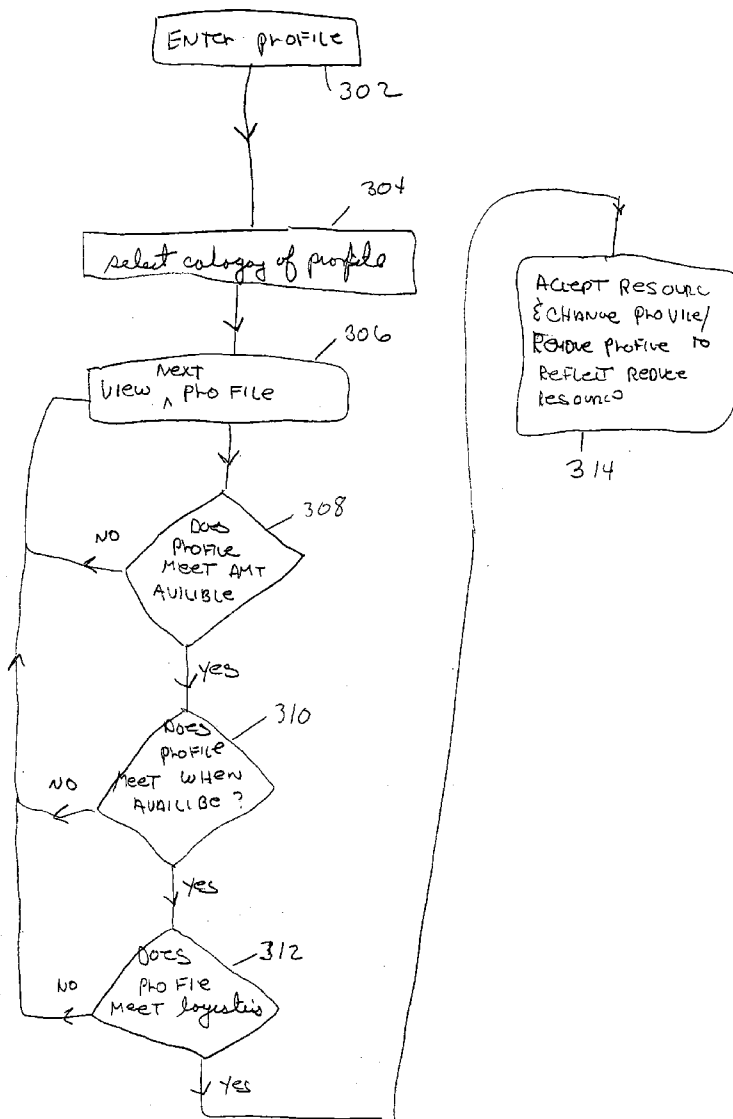 ENTER PROFILE
302
304
select catagay of profile
306
NEXT
VIEW ^ PROFILE
308
DOES
PROFILE
MEET AMT
AVILIBLE
NO
YES
310
DOES
PROFILE
MEET WHEN
AVAILIBE ?
NO
YES
312
DOES
PROFILE
MEET logistis
NO
YES
ACCEPT RESOURC
& CHANGE PROVILE/
REMOVE PROFILE TO
REFLECT REDUCE
RESOURC
314